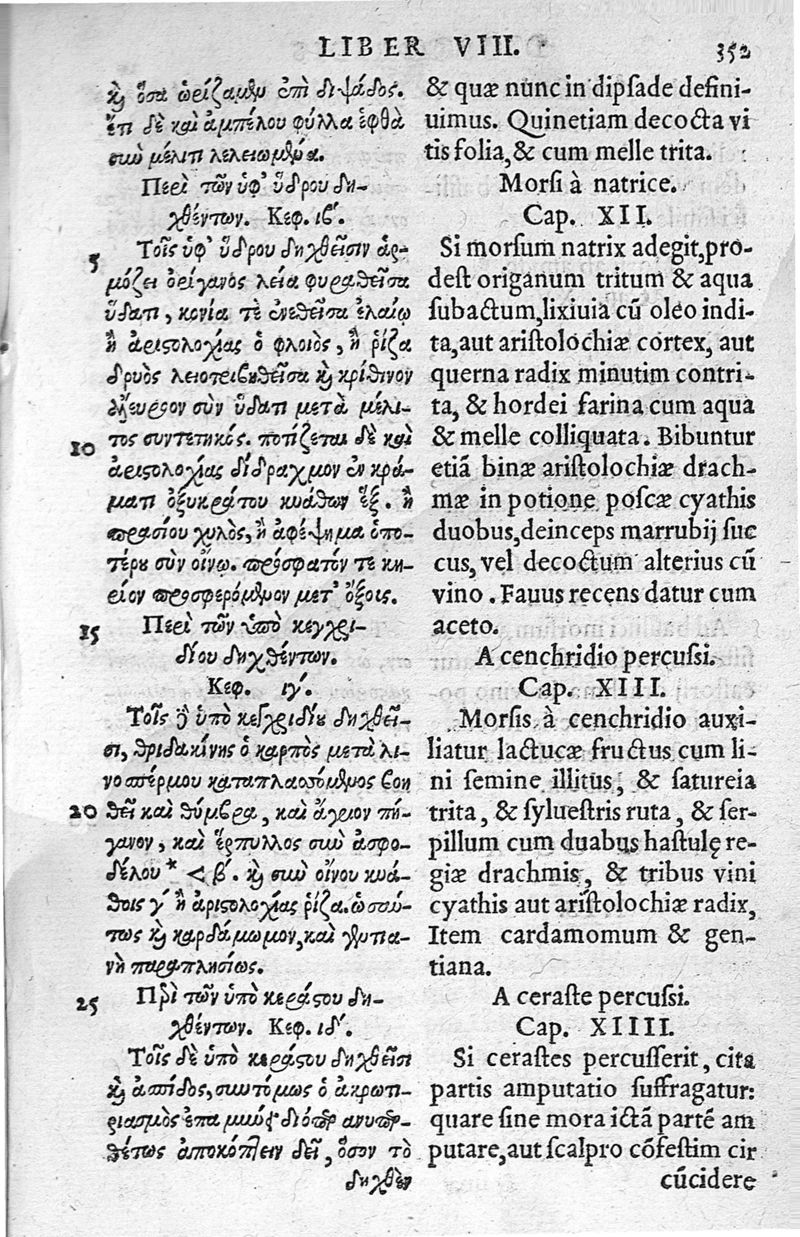 LIBER VIII. 352
ϗ ὅσα ὡρίζαμεν ἐπὶ διψάδος.
ἔτι δὲ καὶ ἀμπέλου φύλλα ἑφθὰ
σὺν μέλιτι λελειωμένα.
Περὶ τῶν ὑφ' ὕδρου δη-
χθέντων. Κεφ. ιβ'.
Τοῖς ὑφ' ὕδρου δηχθεῖσιν ἁρ-
5
μόζει ὀρίγανος λεία φυραθεῖσα
ὕδατι, κονία τὲ ἐνεθεῖσα ἐλαίῳ
ἢ ἀριστολοχίας ὁ φλοιὸς, ἢ ῥίζα
δρυὸς λειοτριβηθεῖσα ϗ κρίθινον
ἄλευρον σὺν ὕδατι μετὰ μέλι-
τος συντετηκός. ποτίζεται δὲ καὶ
10
ἀριστολοχίας δίδραχμον ἐν κρά-
ματι ὀξυκράτου κυάθων ἕξ. ἢ
πρασίου χυλὸς, ἢ ἀφέψημα ὁπο-
τέρου σὺν οἴνῳ. πρόσφατόν τε κη-
ρίον προσφερόμενον μετ' ὄξοις.
Περὶ τῶν ὑπὸ κεγχρι-
15
δίου δηχθέντων.
Κεφ. ιγ'.
Τοῖς δὲ ὑπὸ κεγχριδίου δηχθεῖ-
σι, θριδακίνης ὁ καρπὸς μετὰ λι-
νοσπέρμου καταπλασσόμενος βοη
20 θεῖ καὶ θύμβρα, καὶ ἄγριον πή-
γανον, καὶ ἕρπυλλος σὺν ἀσφο-
δέλου * < β'. ϗ σὺν οἴνου κυά-
θοις γ' ἢ ἀριστολοχίας ῥίζα. ὡσαύ-
τως ϗ καρδάμωμον, καὶ γεντια-
νὴ παραπλησίως.
25 Περὶ τῶν ὑπὸ κεράστου δη-
χθέντων. Κεφ. ιδ'.
Τοῖς δὲ ὑπὸ κεράστου δηχθεῖσι
ϗ ἀσπίδος, συντόμως ὁ ἀκρωτη-
ριασμὸς διόπερ ἀνυπερ-
θέτως ἀποκόπτειν δεῖ, ὅσον τὸ
δηχθὲν
& quæ nunc in dipſade defini-
uimus. Quinetiam decocta vi
tis folia, & cum melle trita.
Morſi à natrice.
Cap. XII.
Si morſum natrix adegit, pro-
deſt origanum tritum & aqua
ſubactum, lixiuia cū oleo indi-
ta, aut ariſtolochiæ cortex, aut
querna radix minutim contri-
ta, & hordei farina cum aqua
& melle colliquata. Bibuntur
etiā binæ ariſtolochiæ drach-
mæ in potione poſcæ cyathis
duobus, deinceps marrubij ſuc
cus, vel decoctum alterius cū
vino. Fauus recens datur cum
aceto.
A cenchridio percuſsi.
Cap. XIII.
Morſis à cenchridio auxi-
liatur lactucæ fructus cum li-
ni ſemine illitus, & ſatureia
trita, & ſylueſtris ruta, & ſer-
pillum cum duabus haſtulę re-
giæ drachmis, & tribus vini
cyathis aut ariſtolochiæ radix,
Item cardamomum & gen-
tiana.
A ceraſte percuſsi.
Cap. XIIII.
Si ceraſtes percuſſerit, cita
partis amputatio ſuffragatur:
quare ſine mora ictā partē am
putare, aut ſcalpro cōfeſtim cir
cūcidere